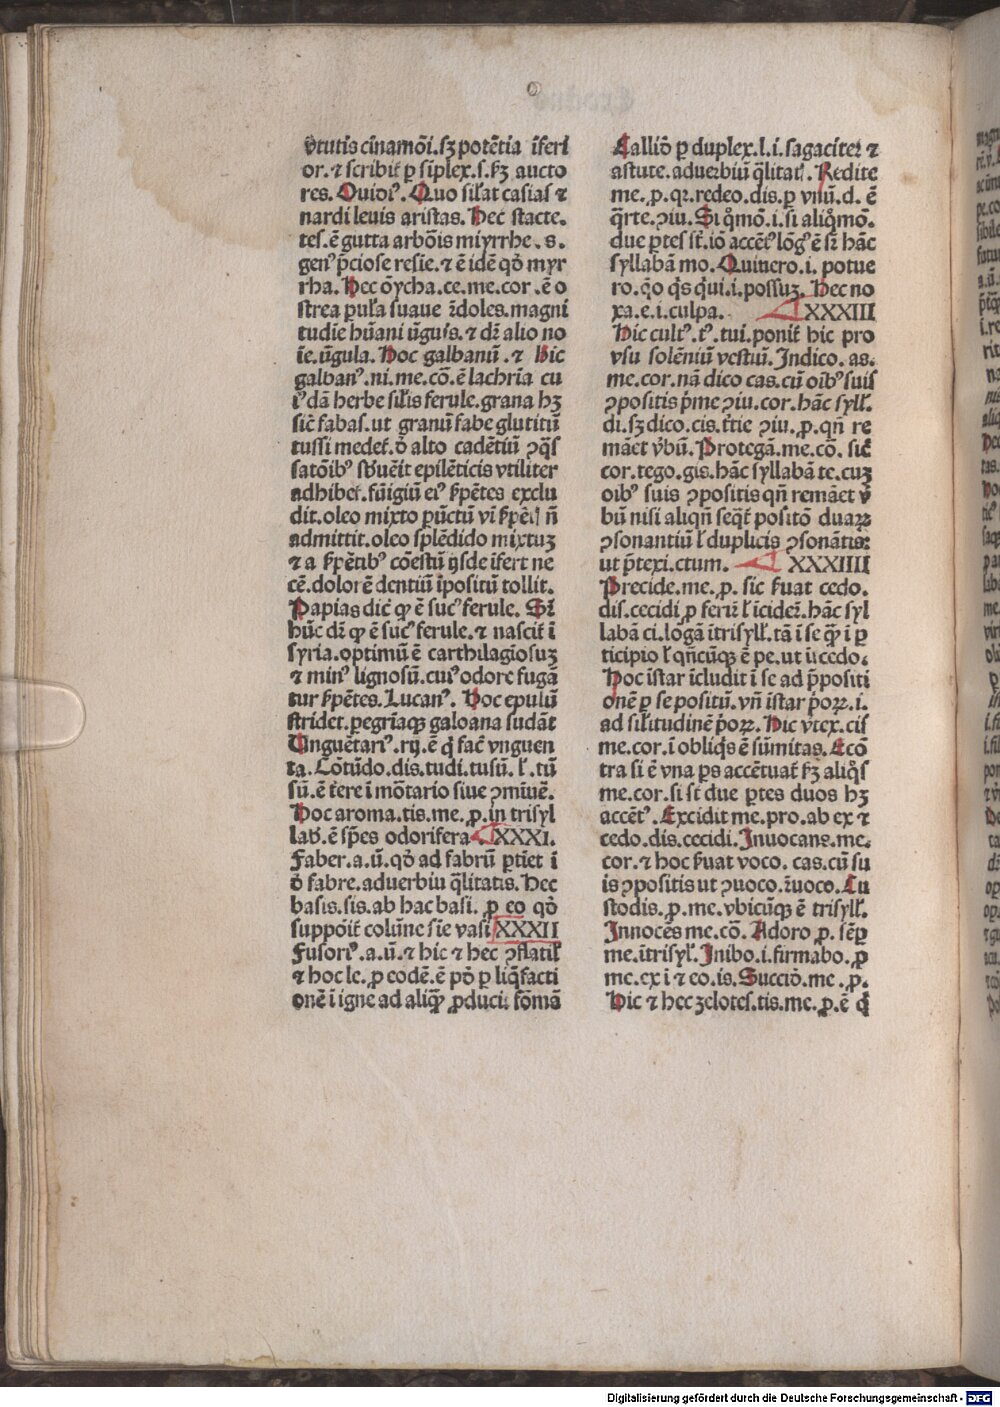 v̄tutis cinamōi.sꝫ potētia īferi
or.⁊ scribit̄ ꝑ sīplex.s.ẜꝫ aucto
res. Ouidiꝰ. Quo sil̄at casias ⁊
nardi leuis aristas. Hec stacte.
tes.ē gutta arbōis miyrrhe.s.
genꝰ p̄ciose resīe.⁊ ē idē qd̄ myr
rha. Hec ōycha.ce.me.cor.ē o
strea pul̄a suaue r̄doles.magni
tudīe hūani ūguis.⁊ dr̄ alio no
īe.ūgula. Hoc galbanū.⁊ hic
galbanꝰ.ni.me.cō.ē lachrīa cu
iꝰdā herbe sil̄is ferule.grana hꝫ
sic̄ fabas.ut granū fabe glutitū
tussi medet̄.d̄ alto cadētiū ꝯq̄s
satōibꝰ sb̄uēit epilēticis vtiliter
adhibet̄.fūigiū eiꝰ ẜpētes exclu
dit.oleo mixto ꝑūctū vī ẜpētī n̄
admittit.oleo splēdido mixtuꝫ
⁊ a ẜpētibꝰ cōestū ijsde īfert ne
cē.dolorē dentiū īpositū tollit.
Papias dic̄ ꝙ ē sucꝰ ferule. Sꝫ
hūc dr̄ ꝙ ē sucꝰ ferule.⁊ nascit̄ ī
syria.optimū ē carthilagīosuꝫ
⁊ minꝰ lignosū.cuiꝰ odore fugā
tur ẜpētes. Lucanꝰ. Hoc epulū
stridet.ꝑegrīaqꝫ galbana sudāt
Unguētariꝰ.rij.ē q̇ fac̄ vnguen
ta. Cōtūdo.dis.tudi.tusū.l̄.tū
sū.ē t̄ere ī mōtario siue ꝯmīuē.
Hoc aroma.tis.me.ꝓ.in trisyl
lab̄.ē sp̄es odorifera XXXI.
Faber.a.ū.qd̄ ad fabrū ꝑtīet ī
d̄ fabre.aduerbiū q̄litatis. Hec
basis.sis.ab hac basi. ꝑ eo qd̄
suppōit̄ colūne siē vasi XXXII
Fusoriꝰ.a.ū.⁊ hic ⁊ hec ꝯflatil̄
⁊ hoc le.ꝓ eodē.ē pd̄ ꝑ liq̄facti
onē ī igne ad aliqꝫ ꝓduci: fōmā
Calliō ꝑ duplex.l.i.sagaciter ⁊
astute.aduerbiū q̄litatꝭ. Redite
me.ꝓ.qꝛ.redeo.dis.ꝑ vnū.d.ē
q̄rte.ꝯiu. Si q̊mō.i.si aliq̊mō.
due ꝑtes st̄.iō accētꝰ lōgꝰ ē sꝫ hāc
syllabā mo. Quiuero.i.potue
ro.qd̄o q̇s q̇ui.i.possuꝫ. Hec no
xa.e.i.culpa. XXXIII
Hic cultꝰ.tꝰ.tui.ponit̄ hic pro
vsu solēniū vestiū. Indico.as.
me.cor.nā dico cas.cū oībꝰ suis
ꝯpositis p̄me ꝯiu.cor.hāc syll̄.
di.sꝫ dico.cis.t̄tie ꝯiu.ꝓ.qn̄ re
māet v̄bū. Protegā.me.cō. sic̄
cor.tego.gis.hāc syllabā te.cuꝫ
oībꝰ suis ꝯpositis qn̄ remāet v̄
bū nisi aliqn̄ seqt̄ positō duaꝝ
ꝯsonantiū l̄ duplicis ꝯsonātis:
ut p̄texi.ctum. XXXIIII
Precide.me.ꝓ. sic ẜuat cedo.
dis.cecidi ꝑ ferir̄ l̄ īcider̄.hāc syl
labā ci.lōgā ītrisyll̄.tā ī se ꝙ ī ꝑ
ticipio l̄ qn̄cūqꝫ ē pe.ut ūcedo.
Hoc īstar īcludit ī se ad p̄positi
onē ꝑ se positū.vn̄ īstar p̄oꝝ.i.
ad sil̄itudinē p̄oꝝ. Hic v̄tex.cis
me.cor.ī obliq̇s ē sūmitas. Ecō
tra si ē vna ꝑs accētuat̄ ẜꝫ aliq̊s
me.cor.si st̄ due ꝑtes duos hꝫ
accētꝰ. Excidit me.pro.ab ex ⁊
cedo.dis.cecidi. Inuocans.me.
cor.⁊ hoc ẜuat voco. cas.cū su
is ꝯpositis ut ꝯuoco.r̄uoco. Cu
stodis.ꝓ.me.vbicūqꝫ ē trisyll̄.
Innocēs me.cō. Adoro ꝓ. sēꝑ
me.ītrisyl̄. Inibo.i.firmabo.ꝓ
me.ex ī ⁊ eo.is. Succīd.me.ꝓ.
Hic ⁊ hec zelotes.tis.me.ꝓ.ē q̇
Digitalisierung gefördert durch die Deutsche Forschungsgemeinschaft - DFG